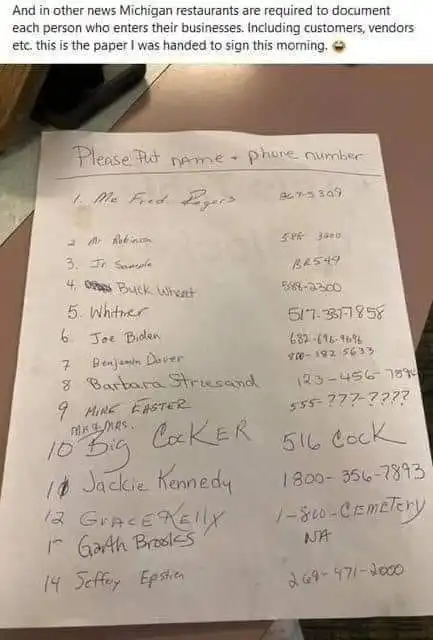 And in other news Michigan restaurants are required to document
each person who enters their businesses. Including customers, vendors
etc. this is the paper I was handed to sign this morning. 😂
Please Put name + phone number
1. Mr Fred Rogers 867-5309
2 Mr Robinson 588-2300
3. Jr Sample BR549
4. Buck Wheat 588-2300
5. Whitmer 517-337-7858
6. Joe Biden 682-696-9696
7 Benjamin Dover 800-382 5633
8 Barbara Striesand 123-456-789
9 MIKE EASTER 555-???-????
MR & MRS.
10 Big COCKER 516 Cock
11 Jackie Kennedy 1800-356-7893
12 GRACE KEllY 1-800-CEMETery
Garth Brooks NA
14 Jeffery Epstien 269-471-2000